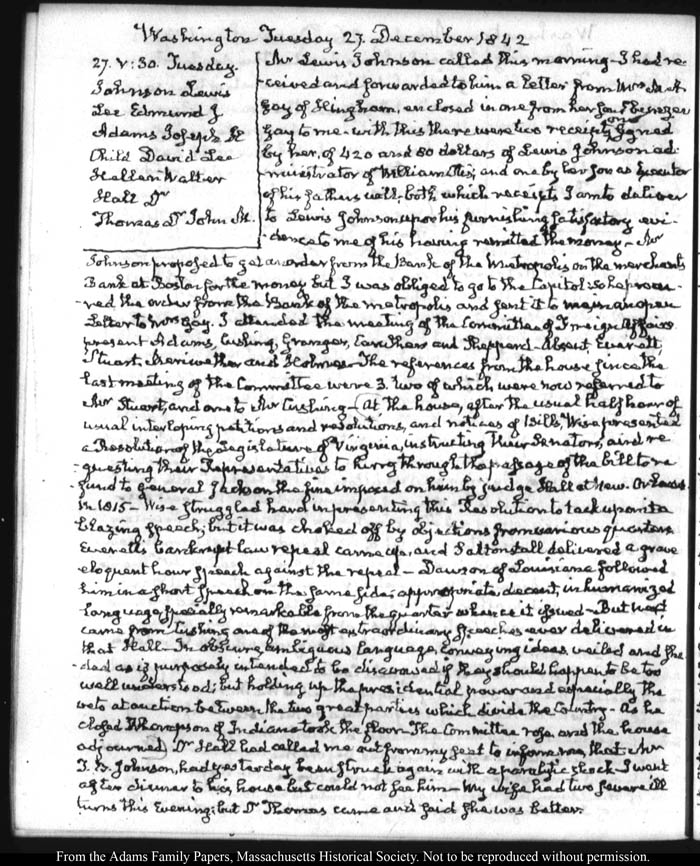 Washington Tuesday 27. December 1842
27. V:30. Tuesday.
Johnson Lewis
Lee Edmund J.
Adams Joseph H
Child David Lee
Hallen Walter
Hall Dr
Thomas Dr John M.
Mr Lewis Johnson called this morning I had re-
-ceived and forwarded to him a Letter from Mrs M. A
Gay of Hingham, enclosed in one from her Son Ebenezer
Gay to me- with this there were two receipts, one signed
by her, of 420 and 80 dollars of Lewis Johnson ad-
ministrator of William Otis; and one by her Son as Executor
of his father's will: both which receipts I am to deliver
to Lewis Johnson upon his furnishing satisfactory evi-
-dence to me of his having remitted the money- Mr
Johnson proposed to get an order from the Bank of the Metropolis on the merchants
Bank at Boston for the money but I was obliged to go to the Capitol So he procu-
-red the order from the Bank of the metropolis and sent it to me in an open
Letter to Mrs Gay. I attended the meeting of the Committee of Foreign Affairs
present Adams, Cushing, Granger, Caruthers and Shepperd- Absent Everett,
Stuart, Meriwether and Holmes- The references from the house since the
last meeting of the Committee were 3. two of which were now referred to
Mr Stuart, and one to Mr Cushing- At the house, after the usual half hour of
usual interloping petitions and resolutions, and notices of Bills, Wise presented
a Resolution of the Legislature of Virginia, instructing their Senators, and re-
-questing their Representatives to hurry through the passage of the bill to re-
-fund to General Jackson the fine imposed on him by judge Hall at New-Orleans
in 1815- Wise struggled hard in presenting this Resolution to tack upon it a
blazing speech, but it was choked off by objections from various quarters
Everett's bankrupt law repeal came up, and Saltonstall delivered a grave
eloquent hour speech against the repeal- Dawson of Louisiana followed
him in a short speech on the same side; appropriate, decent, in humanized
language specially remarkable from the quarter whence it issued- But next
came from Cushing one of the most extraordinary speeches ever delivered in
that Hall- In obscure, ambiguous language, conveying ideas, veiled and sha-
-ded as if purposely intended to be disavowed if they should happen to be too
well understood; but holding up the presidential power and especially the
veto at auction between the two great parties which divide the Country- As he
closed Thompson of Indiana took the floor. The Committee rose, and the house
adjourned. Dr Hall had called me out from my seat to inform me, that Mr
J. B. Johnson, had yesterday been struck again with a paralytic shock- I went
after dinner to his house but could not see him- My wife had two severe ill
turns this Evening: but Dr Thomas came and said she was better.
From the Adams Family Papers, Massachusetts Historical Society. Not to be reproduced without permission.